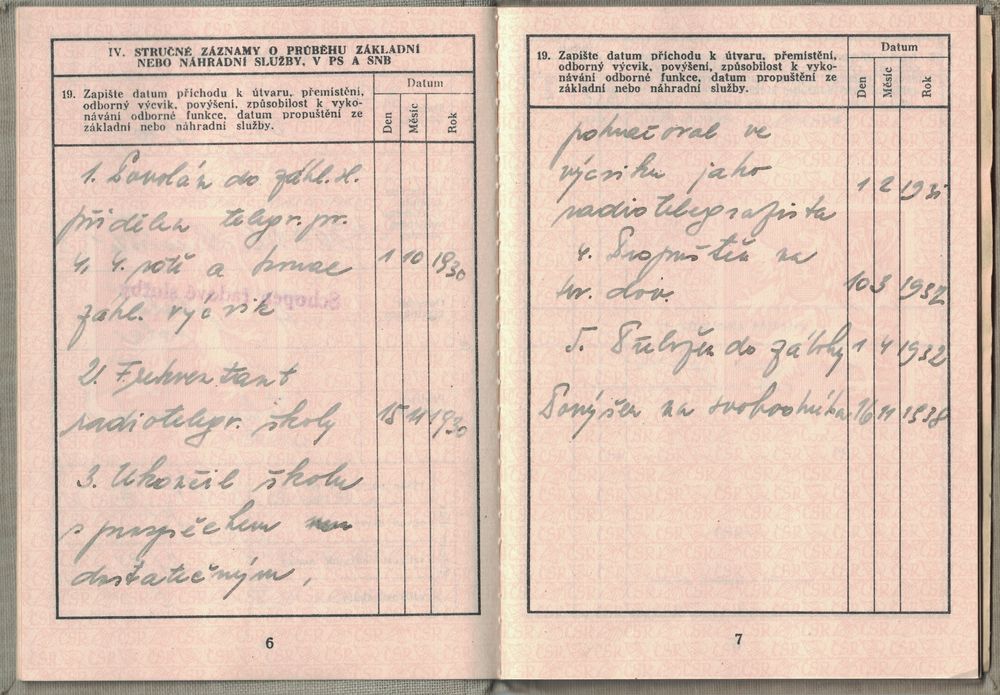 IV. STRUČNÉ ZÁZNAMY O PRŮBĚHU ZÁKLADNÍ
NEBO NÁHRADNÍ SLUŽBY, V PS A SNB
19. Zapište datum příchodu k útvaru, přemístění,
odborný výcvik, povýšení, způsobilost k vyko-
návání odborné funkce, datum propuštění ze
základní nebo náhradní služby.
Datum
Den Měsíc Rok
1. Povolán do zákl. sl.
přidělen telegr. pr.
4, 4. rotě a konec 1 10 1930
zákl. výcvik
2. Frekventant
radiotelegr. školy 15 11 1930
3. Ukončil školu
s prospěchem
dostatečným,
6
19. Zapište datum příchodu k útvaru, přemístění,
odborný výcvik, povýšení, způsobilost k vyko-
návání odborné funkce, datum propuštění ze
základní nebo náhradní služby.
Datum
Den Měsíc Rok
pokračoval ve
výcviku jako 1 2 1931
radiotelegrafista
4. Propuštěn na
tr. dov. 10 3 1932
5. Přeložen do zálohy 1 4 1932
Povýšen na svobodníka 16 11 1938
7
Schopen řadové služby